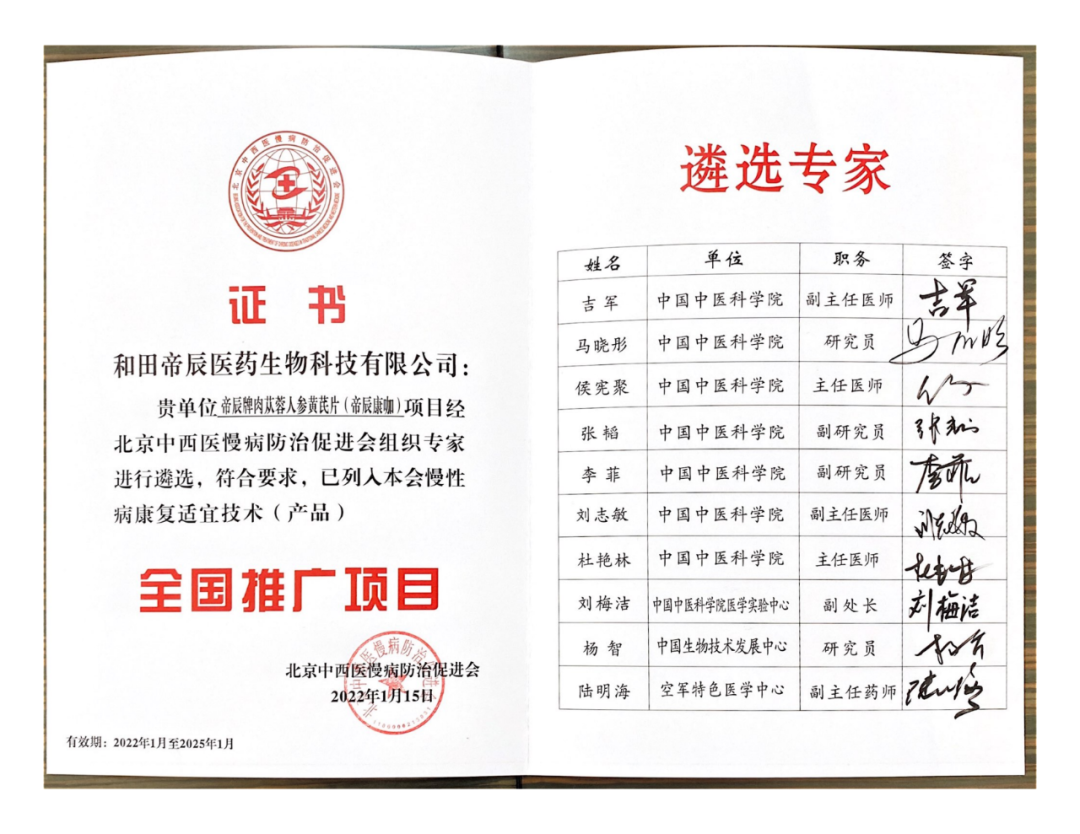 北京中西医慢病防治促进会
证书
和田帝辰医药生物科技有限公司：
贵单位帝辰牌肉苁蓉人参黄芪片（帝辰康咖）项目经
北京中西医慢病防治促进会组织专家
进行遴选，符合要求，已列入本会慢性
病康复适宜技术（产品）
全国推广项目
北京中西医慢病防治促进会
2022年1月15日
有效期：2022年1月至2025年1月
遴选专家
姓名 单位 职务 签字
吉军 中国中医科学院 副主任医师 吉军
马晓彤 中国中医科学院 研究员
侯宪聚 中国中医科学院 主任医师
张韬 中国中医科学院 副研究员
李菲 中国中医科学院 副研究员 李菲
刘志敏 中国中医科学院 副主任医师 刘志敏
杜艳林 中国中医科学院 主任医师
刘梅洁 中国中医科学院医学实验中心 副处长 刘梅洁
杨智 中国生物技术发展中心 研究员
陆明海 空军特色医学中心 副主任药师